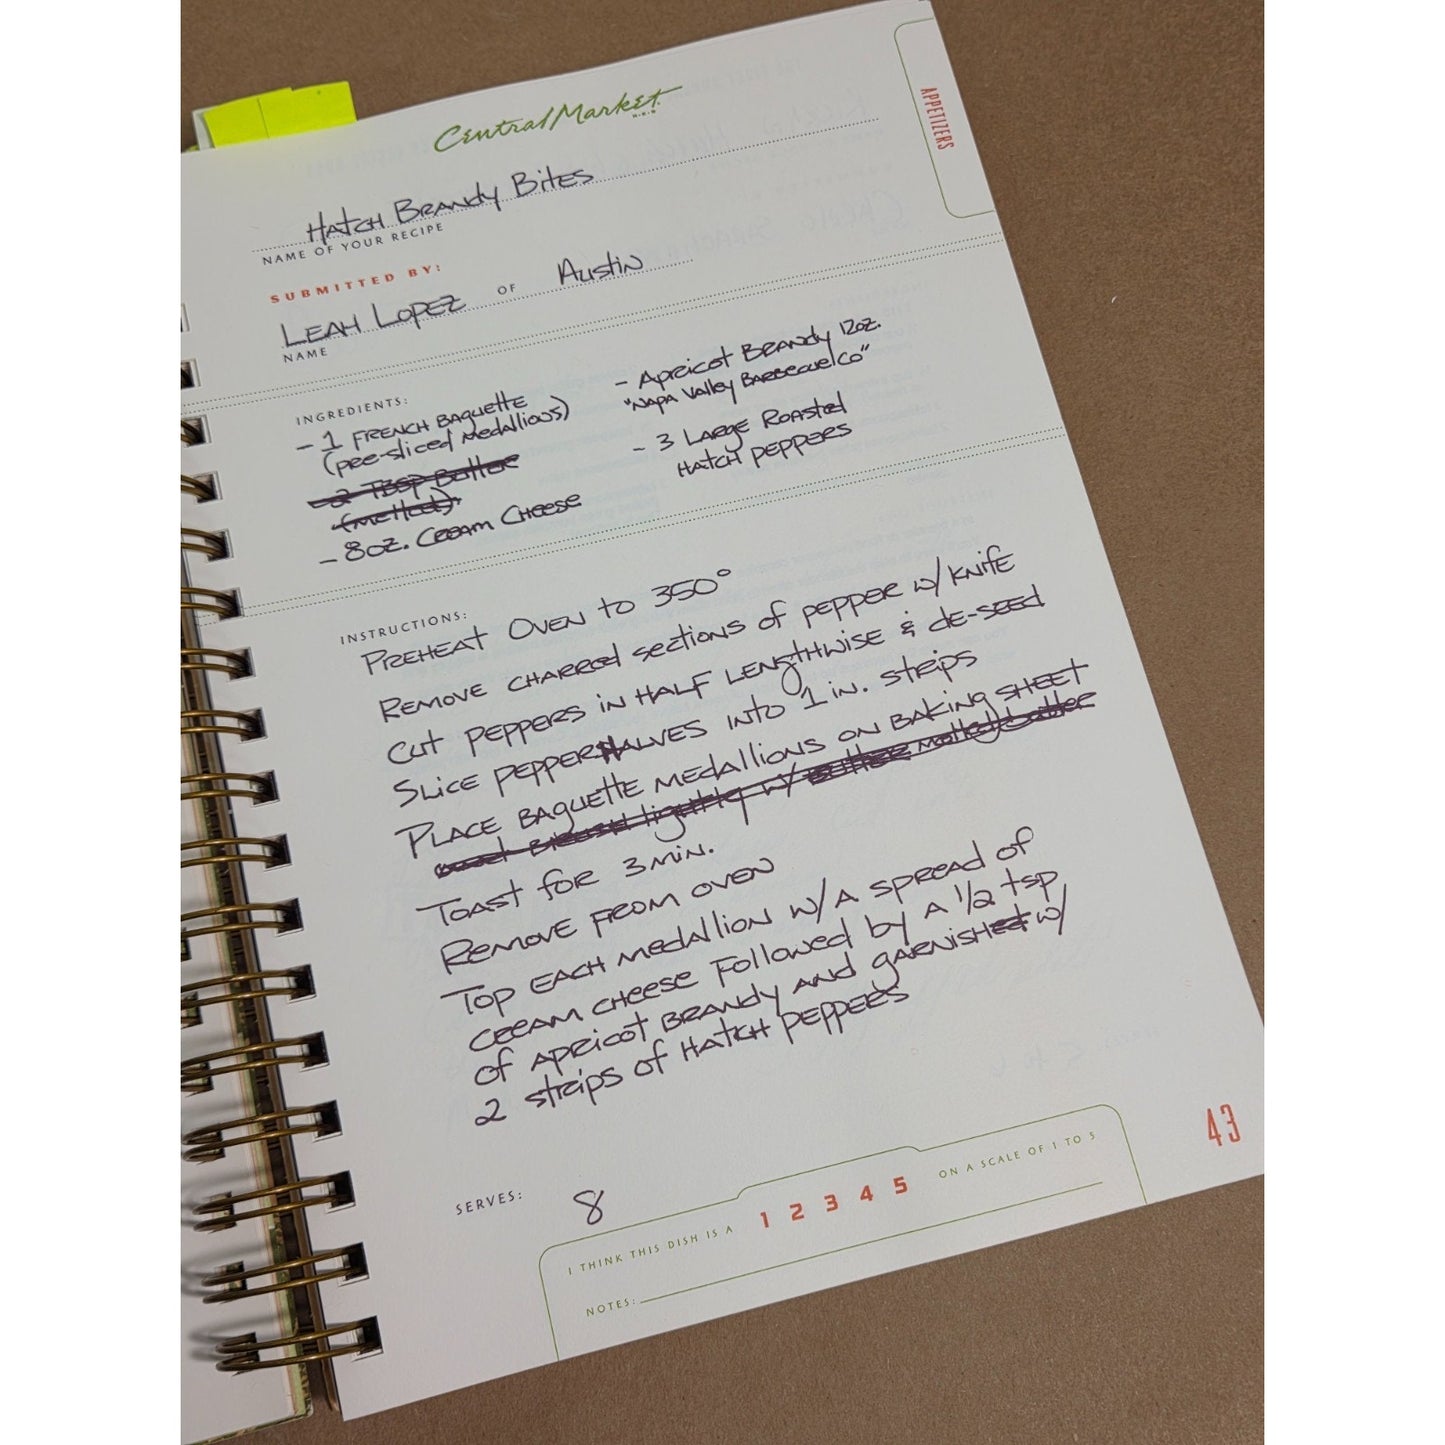 Central Market
H-E-B
APPETIZERS
HATCH BRANDY BITES
NAME OF YOUR RECIPE
SUBMITTED BY:
LEAH LOPEZ OF AUSTIN
NAME
INGREDIENTS:
- 1 FRENCH BAGUETTE
(pre-sliced medallions)
- 2 TBSP Butter
(melted)
- 8oz. CREAM CHEESE
- APRICOT BRANDY 12oz.
"NAPA VALLEY BARBECUE CO"
- 3 LARGE ROASTED
HATCH PEPPERS
INSTRUCTIONS:
PREHEAT OVEN to 350°
REMOVE CHARRED sections of pepper w/ KNIFE
CUT PEPPERS in HALF LENGTHWISE & DE-SEED
SLICE PEPPER HALVES INTO 1 in. strips
PLACE BAGUETTE MEDALLIONS ON BAKING SHEET
and brush lightly w/ butter melted butter
TOAST for 3 MIN.
REMOVE FROM OVEN
TOP EACH MEDALLION W/ A SPREAD of
CREAM CHEESE Followed by A 1/2 tsp
of APRICOT BRANDY AND GARNISHED w/
2 strips of HATCH PEPPERS
SERVES: 8
I THINK THIS DISH IS A 1 2 3 4 5 ON A SCALE OF 1 TO 5
NOTES:
43